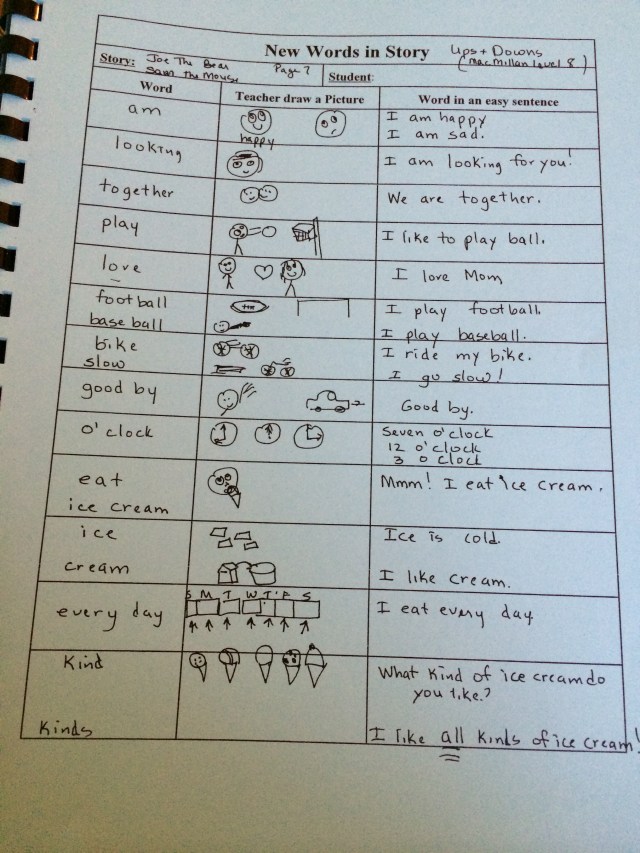 New Words in Story Ups + Downs
(MacMillan Level 8)
Story: Joe The Bear
Sam The Mouse
Page 7 Student:
Word Teacher draw a Picture Word in an easy sentence
am happy I am happy
I am sad.
looking I am looking for you!
together We are together.
play I like to play ball.
love I love Mom
football I play football.
baseball I play baseball.
bike I ride my bike.
slow I go slow!
good by Good by.
o'clock Seven o'clock
12 o'clock
3 o clock
eat Mmm! I eat ice cream.
ice cream
ice Ice is cold.
cream I like cream.
S M T W T F S
every day I eat every day
Kind What Kind of ice cream do
you like?
Kinds I like all Kinds of ice cream!